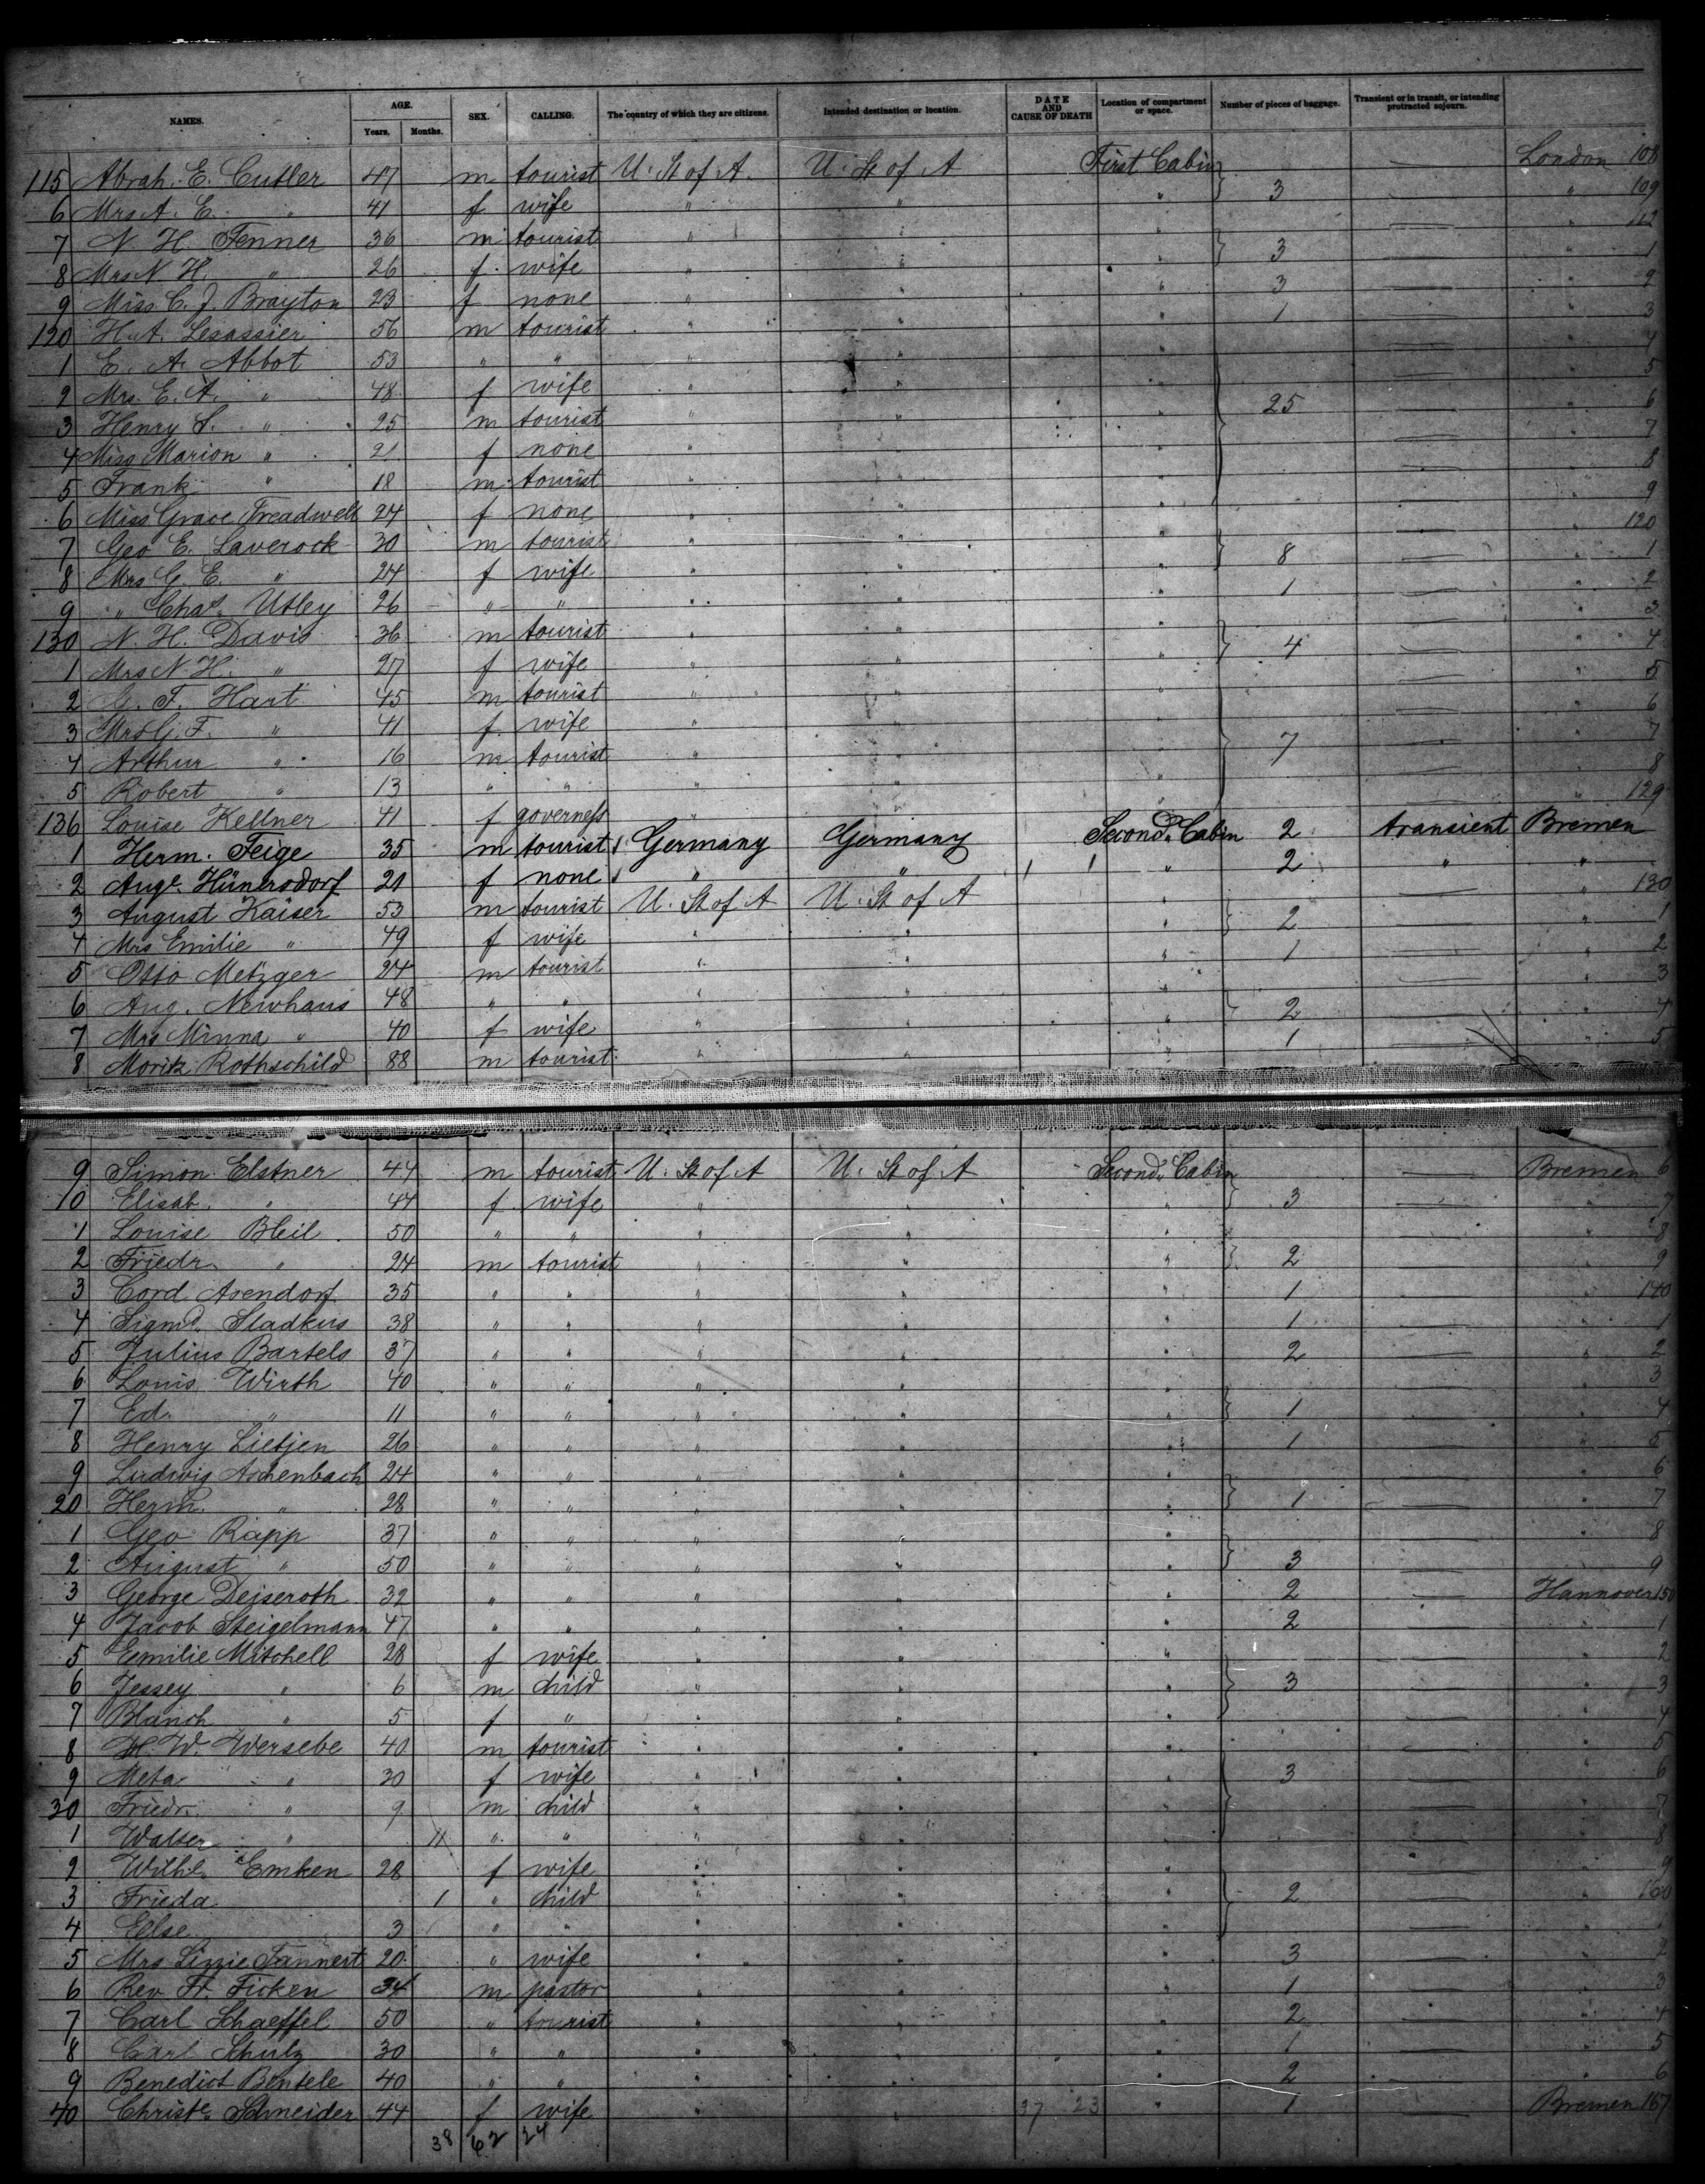 NAMES. AGE. SEX. CALLING. The country of which they are citizens. Intended destination or location. DATE AND CAUSE OF DEATH Location of compartment or space. Number of pieces of baggage. Transient or in transit, or intending protracted sojourn.
Years. Months.
115 Abrah. E. Cutler 47 m tourist U. St of A. U. St of A First Cabin — London 108
6 Mrs A. E. " 41 f wife " " " } 3 — " 109
7 N. H. Fenner 36 m tourist " " " — " 112
8 Mrs N. H. " 26 f. wife " " " } 3 — " 1
9 Miss C. J. Brayton 23 f none " " " 3 — " 2
120 H. A. Lesassier 56 m tourist " " " 1 — " 3
1 E. A. Abbot 53 " " " " " — " 4
2 Mrs. E. A. " 48 f wife " " " — " 5
3 Henry S. " 25 m tourist " " " } 25 — " 6
4 Miss Marion " 21 f none " " " — " 7
5 Frank " 18 m tourist " " " — " 8
6 Miss Grace Treadwell 24 f none " " " — " 9
7 Geo E. Laverock 30 m tourist " " " — " 120
8 Mrs G. E. " 24 f wife " " " } 8 — " 1
9 " Chas. Utley 26 " " " " " 1 — " 2
130 N. H. Davis 36 m tourist " " " — " 3
1 Mrs N. H. " 27 f wife " " " } 4 — " 4
2 G. F. Hart 45 m tourist " " " — " 5
3 Mrs G. F. " 41 f. wife " " " — " 6
4 Arthur " 16 m tourist " " " } 7 — " 7
5 Robert " 13 " " " " " — " 8
136 Louise Kellner 41 f governess " " " — " 129
1 Herm. Feige 35 m tourist Germany Germany Second Cabin 2 transient Bremen
2 Auge. Hünersdorf 21 f none " " " 2 " "
3 August Kaiser 53 m tourist U. St of A U. St of A " — " 130
4 Mrs Emilie " 49 f wife " " " } 2 — " 1
5 Otto Metzger 24 m tourist " " " 1 — " 2
6 Aug. Newhaus 48 " " " " " — " 3
7 Mrs Minna " 40 f wife " " " } 2 — " 4
8 Moritz Rothschild 88 m tourist " " " 1 — " 5
9 Simon Elstner 44 m tourist U. St of A U. St of A Second Cabin — Bremen 6
10 Elisab. " 44 f. wife " " " } 3 — " 7
1 Louise Bleil 50 " " " " " — " 8
2 Friedr. " 24 m tourist " " " } 2 — " 9
3 Cord Asendorf 35 " " " " " 1 — " 140
4 Sigmd. Sladkus 38 " " " " " 1 — " 1
5 Julius Bartels 37 " " " " " 2 — " 2
6 Louis Wirth 40 " " " " " — " 3
7 Ed. " 11 " " " " " } 1 — " 4
8 Henry Lietjen 26 " " " " " 1 — " 5
9 Ludwig Aschenbach 24 " " " " " — " 6
20 Herm. " 28 " " " " " } 1 — " 7
1 Geo Rapp 37 " " " " " — " 8
2 August " 50 " " " " " } 3 — " 9
3 George Dejseroth 32 " " " " " 2 — Hannover 150
4 Jacob Steigelmann 47 " " " " " 2 — " 1
5 Emilie Mitchell 28 f wife " " " — " 2
6 Jessey " 6 m child " " " } 3 — " 3
7 Blanch " 5 f " " " " — " 4
8 H. W. Wersebe 40 m tourist " " " — " 5
9 Meta " 30 f wife " " " } 3 — " 6
30 Friedr. " 9 m child " " " — " 7
1 Walter " 11 " " " " " — " 8
2 Wilhe. Emken 28 f wife " " " — " 9
3 Frieda 1 " child " " " } 2 — " 160
4 Else 3 " " " " " —
5 Mrs Lizzie Tannert 20 " wife " " " 3 — " 2
6 Rev. Fr. Ficken 34 m pastor " " " 1 — " 3
7 Carl Schaeffel 50 " tourist " " " 2 — " 4
8 Carl Schulz 30 " " " " " 1 — " 5
9 Benedict Bentele 40 " " " " " 2 — " 6
40 Christe. Schneider 44 f wife " " 37 23 " 1 — Bremen 167
38 62 24